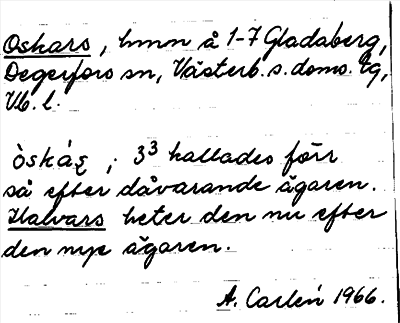 Oskars, hmn å 1-7 Gladaberg,
Degerfors sn, Västerb. s. doms. tg,
Vb. l.
òskás̩ ; 3³ kallades förr
så efter dåvarande ägaren.
Halvars heter den nu efter
den nye ägaren.
A. Carlén 1966.